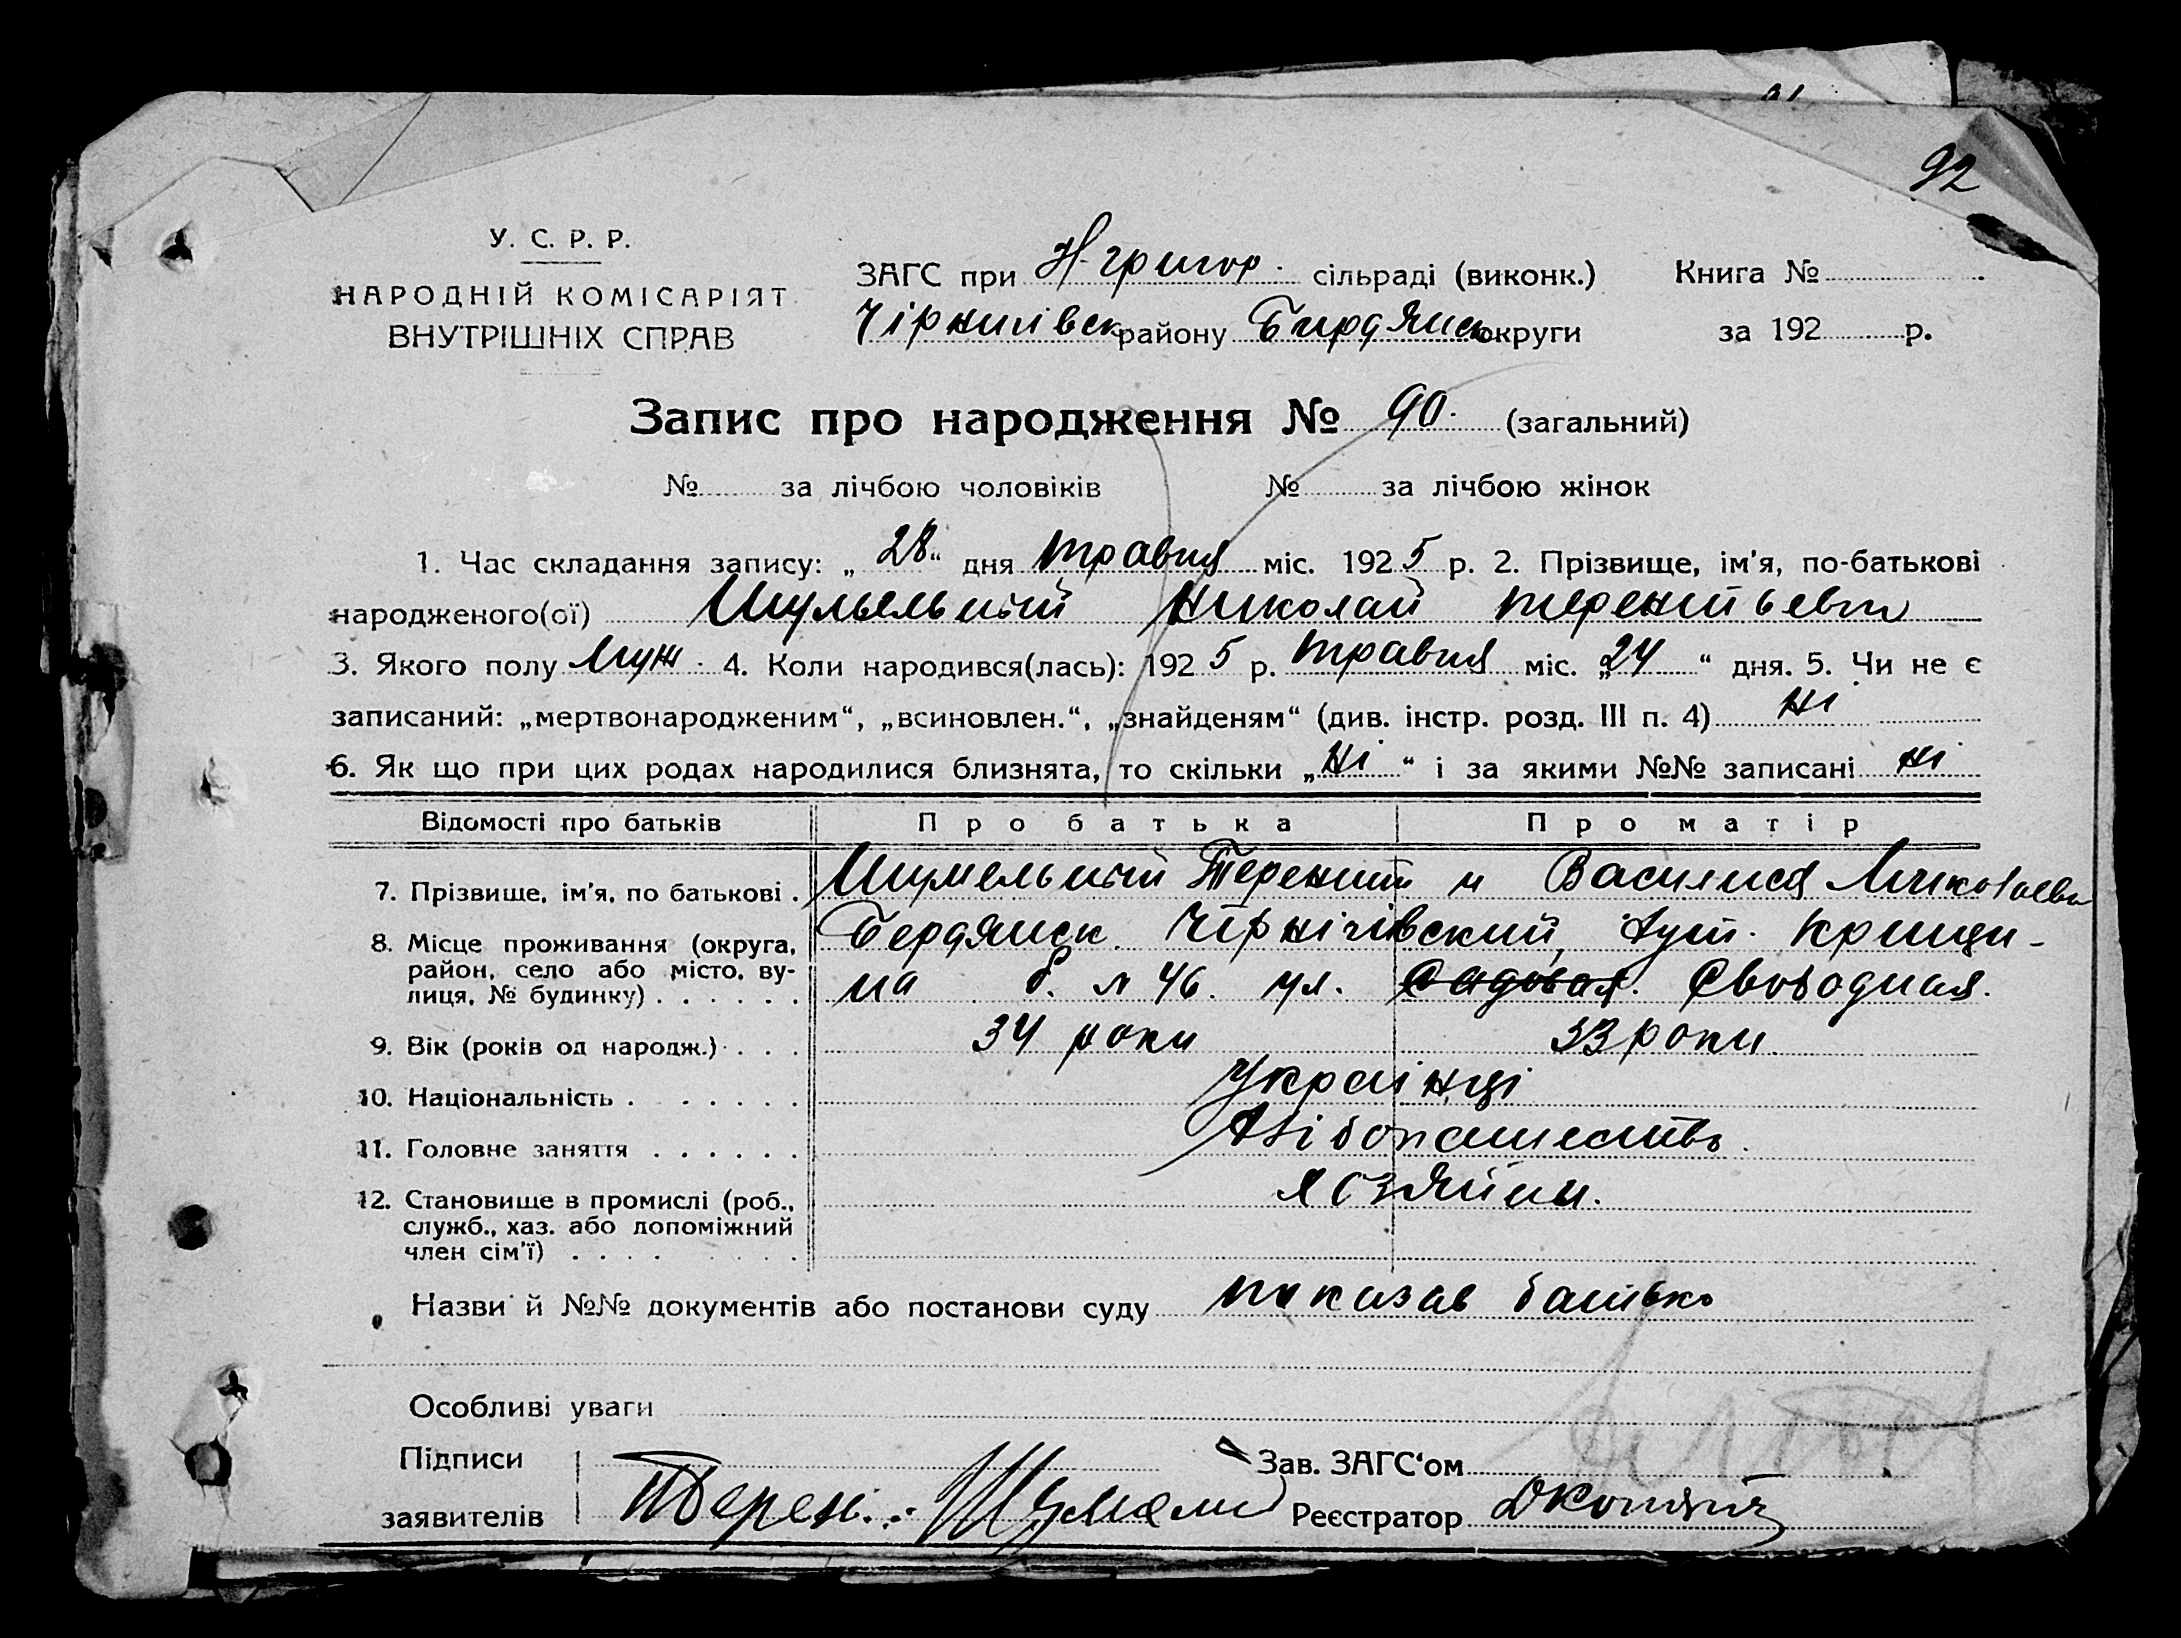 92
У. С. Р. Р.
НАРОДНІЙ КОМІСАРІЯТ
ВНУТРІШНІХ СПРАВ
ЗАГС при Н-григор. сільраді (виконк.) Книга №
Чірнигівск району Бирдянск округи за 192 р.
Запис про народження № 90. (загальний)
№ за лічбою чоловіків № за лічбою жінок
1. Час складання запису: „28“ дня травня міс. 1925 р. 2. Прізвище, ім'я, по-батькові
народженого(ої) Шумельный Николай терентьевич
3. Якого полу Муж. 4. Коли народився(лась): 1925 р. травня міс. „24“ дня. 5. Чи не є
записаний: „мертвонародженим“, „всиновлен.“, „знайденям“ (див. інстр. розд. III п. 4) ні
6. Як що при цих родах народилися близнята, то скільки „ні“ і за якими №№ записані ні
Відомості про батьків Про батька Про матір
7. Прізвище, ім'я, по батькові . Шумельный Терентий и Василиса
8. Місце проживання (округа, Бердянск. Чірнігівский,
район, село або місто, ву-
лиця, № будинку) . . . . . . на б. № 46. ул. Садовая. Свободная.
9. Вік (років од народж.) . . . 34 роки 33 роки
10. Національність . . . . . . Українці
11. Головне заняття . . . . . . Хлібопашество.
12. Становище в промислі (роб., хозяйин.
служб., хаз. або допоміжний
член сім'ї) . . . . . . . .
Назви й №№ документів або постанови суду показав батько
Особливі уваги
Підписи Зав. ЗАГС‘ом
заявителів Терен. Шумели Реєстратор